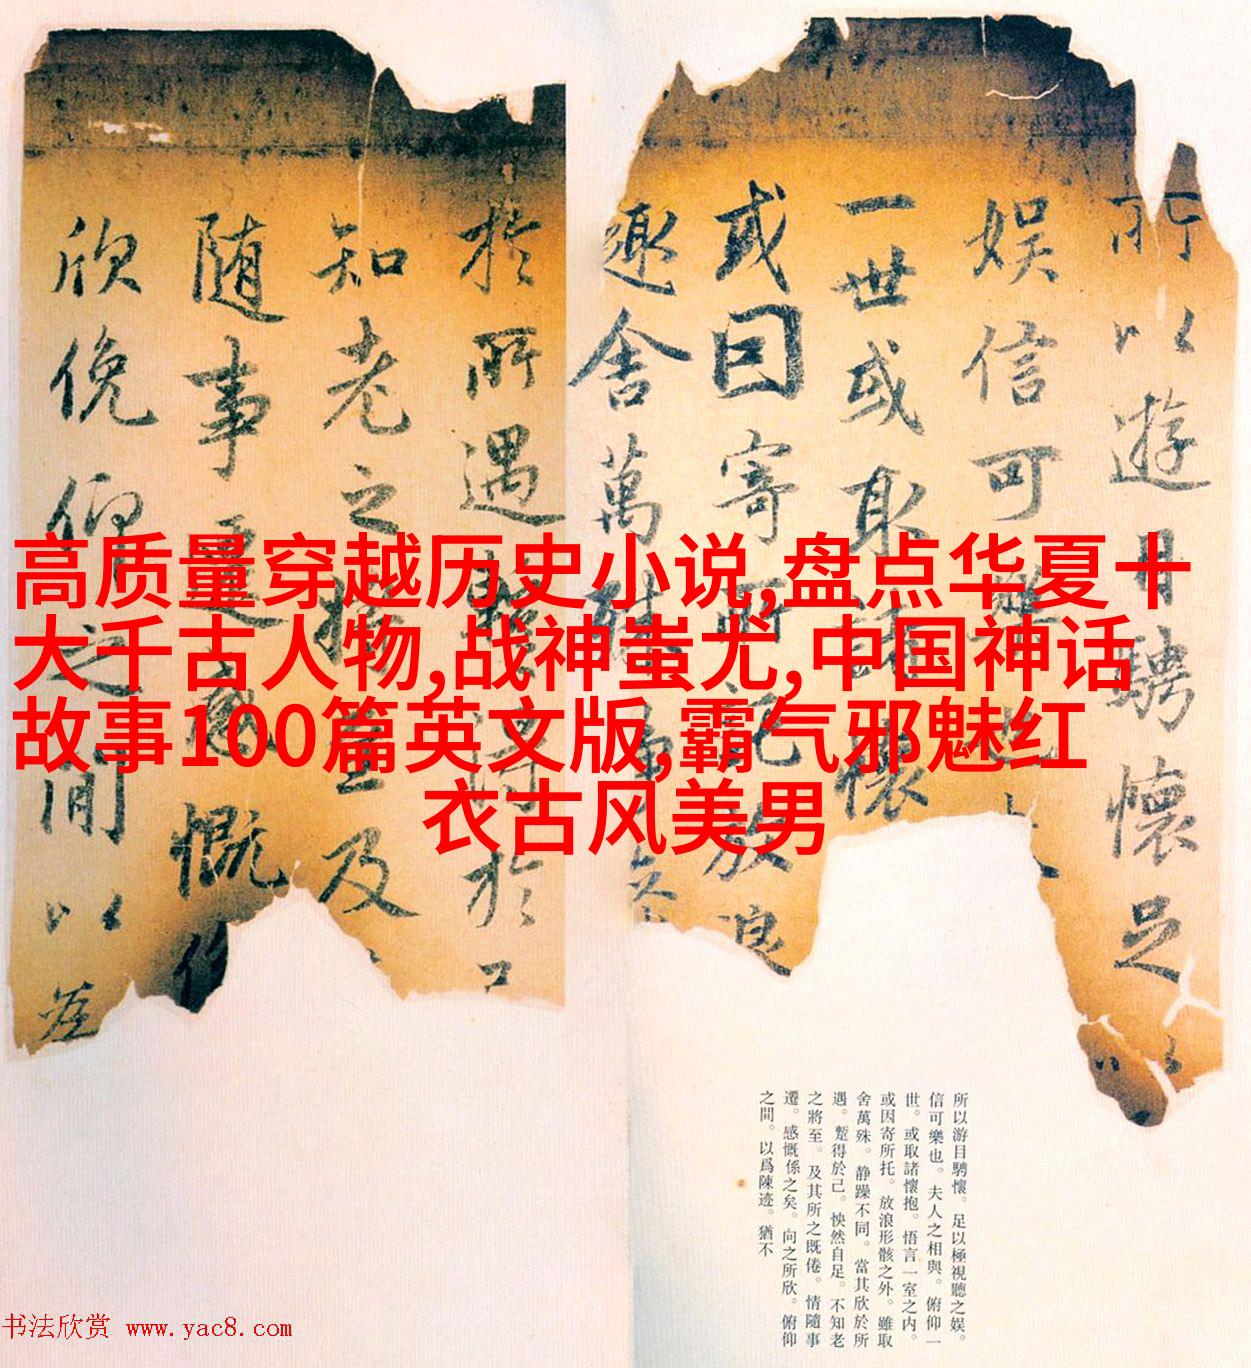 所以遊目騁懷足以
娱信可
一世或取諸懷
或因寄所託放浪
趣舍萬殊
於所遇蹔得於己
知老之将至及
随事遷感慨係
欣俛仰之間以為
高质量穿越历史小说,盘点华夏十
大千古人物,战神蚩尤,中国神话
故事100篇英文版,霸气邪魅红
衣古风美男
所以游目騁懷。足以極視聽之娱。
信可樂也。夫人之相與。俯仰一
世。或取諸懷抱。悟言一室之内。
或因寄所托。放浪形骸之外。雖取
舍萬殊。静躁不同。當其欣於所
遇。蹔得於己。怏然自足。不知老
之將至。及其所之既倦。情隨事
遷。感慨係之矣。向之所欣。俯仰
之間。以爲陳迹。猶不
书法欣赏 www.yac8.com